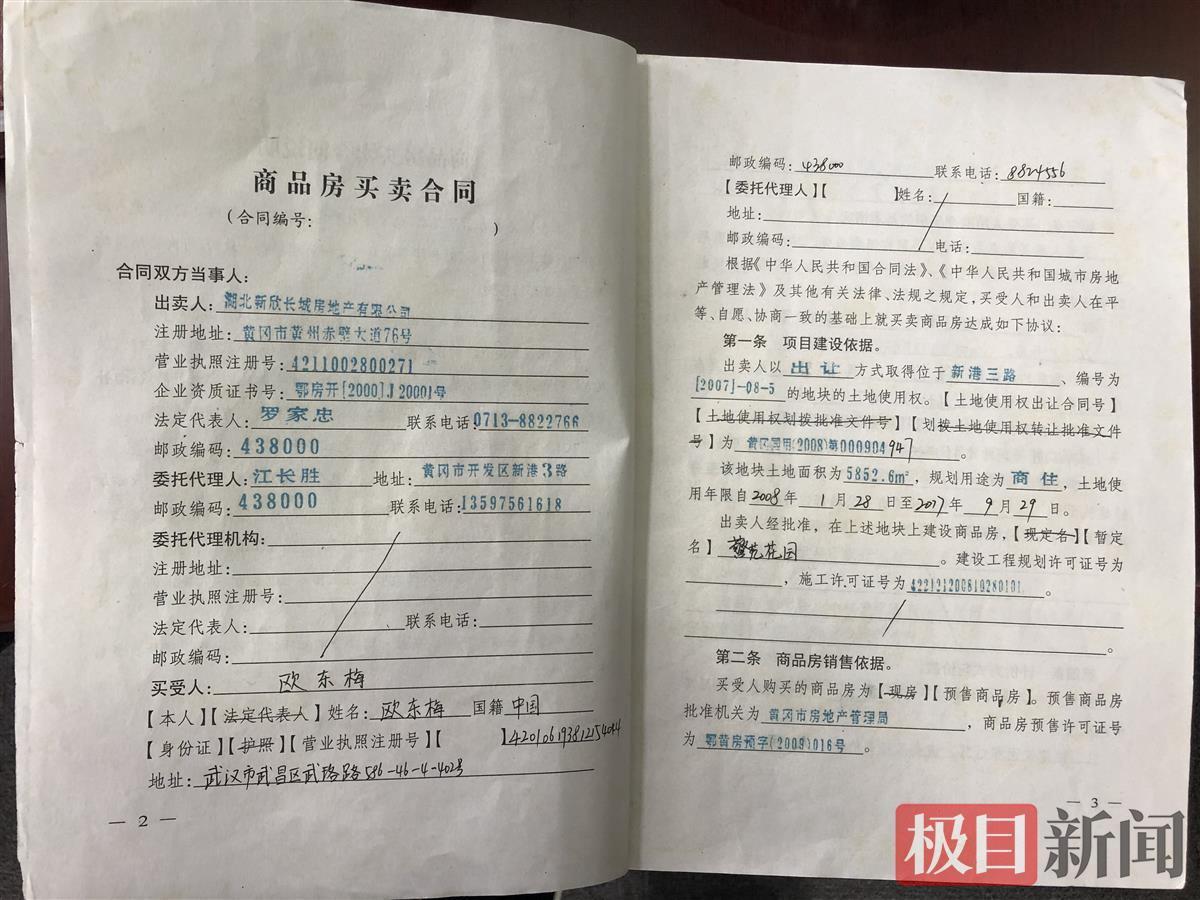 商品房买卖合同
(合同编号: )
合同双方当事人:
出卖人: 湖北新欣长城房地产有限公司
注册地址: 黄冈市黄州赤壁大道76号
营业执照注册号: 4211002800271
企业资质证书号: 鄂房开[2000]J20001号
法定代表人: 罗家忠 联系电话: 0713-8822766
邮政编码: 438000
委托代理人: 江长胜 地址: 黄冈市开发区新港3路
邮政编码: 438000 联系电话: 13597561618
委托代理机构:
注册地址:
营业执照注册号:
法定代表人: 联系电话:
邮政编码:
买受人: 欧东梅
【本人】【法定代表人】姓名: 欧东梅 国籍 中国
【身份证】【护照】【营业执照注册号】【 】
地址: 武汉市武昌区武珞路586-46-4-402号
— 2 —
邮政编码: 438000 联系电话: 8824556
【委托代理人】【 】姓名: 国籍:
地址:
邮政编码: 电话:
根据《中华人民共和国合同法》、《中华人民共和国城市房地
产管理法》及其他有关法律、法规之规定,买受人和出卖人在平
等、自愿、协商一致的基础上就买卖商品房达成如下协议:
第一条 项目建设依据。
出卖人以 出让 方式取得位于 新港三路 、编号为
[2007]-08-5 的地块的土地使用权。【土地使用权出让合同号】
【土地使用权划拨批准文件号】【划拨土地使用权转让批准文件
号】为 黄冈国用(2008)第000904947 。
该地块土地面积为5852.6m²,规划用途为 商住 ,土地使
用年限自2008年 1月28日至2077年 9月29日。
出卖人经批准,在上述地块上建设商品房,【现定名】【暂定
名】 花园 。建设工程规划许可证号为
,施工许可证号为422121200810280101。
。
第二条 商品房销售依据。
买受人购买的商品房为【现房】【预售商品房】。预售商品房
批准机关为 黄冈市房地产管理局 ,商品房预售许可证号
为 鄂黄房预字(2009)016号 。
— 3 —
极目新闻